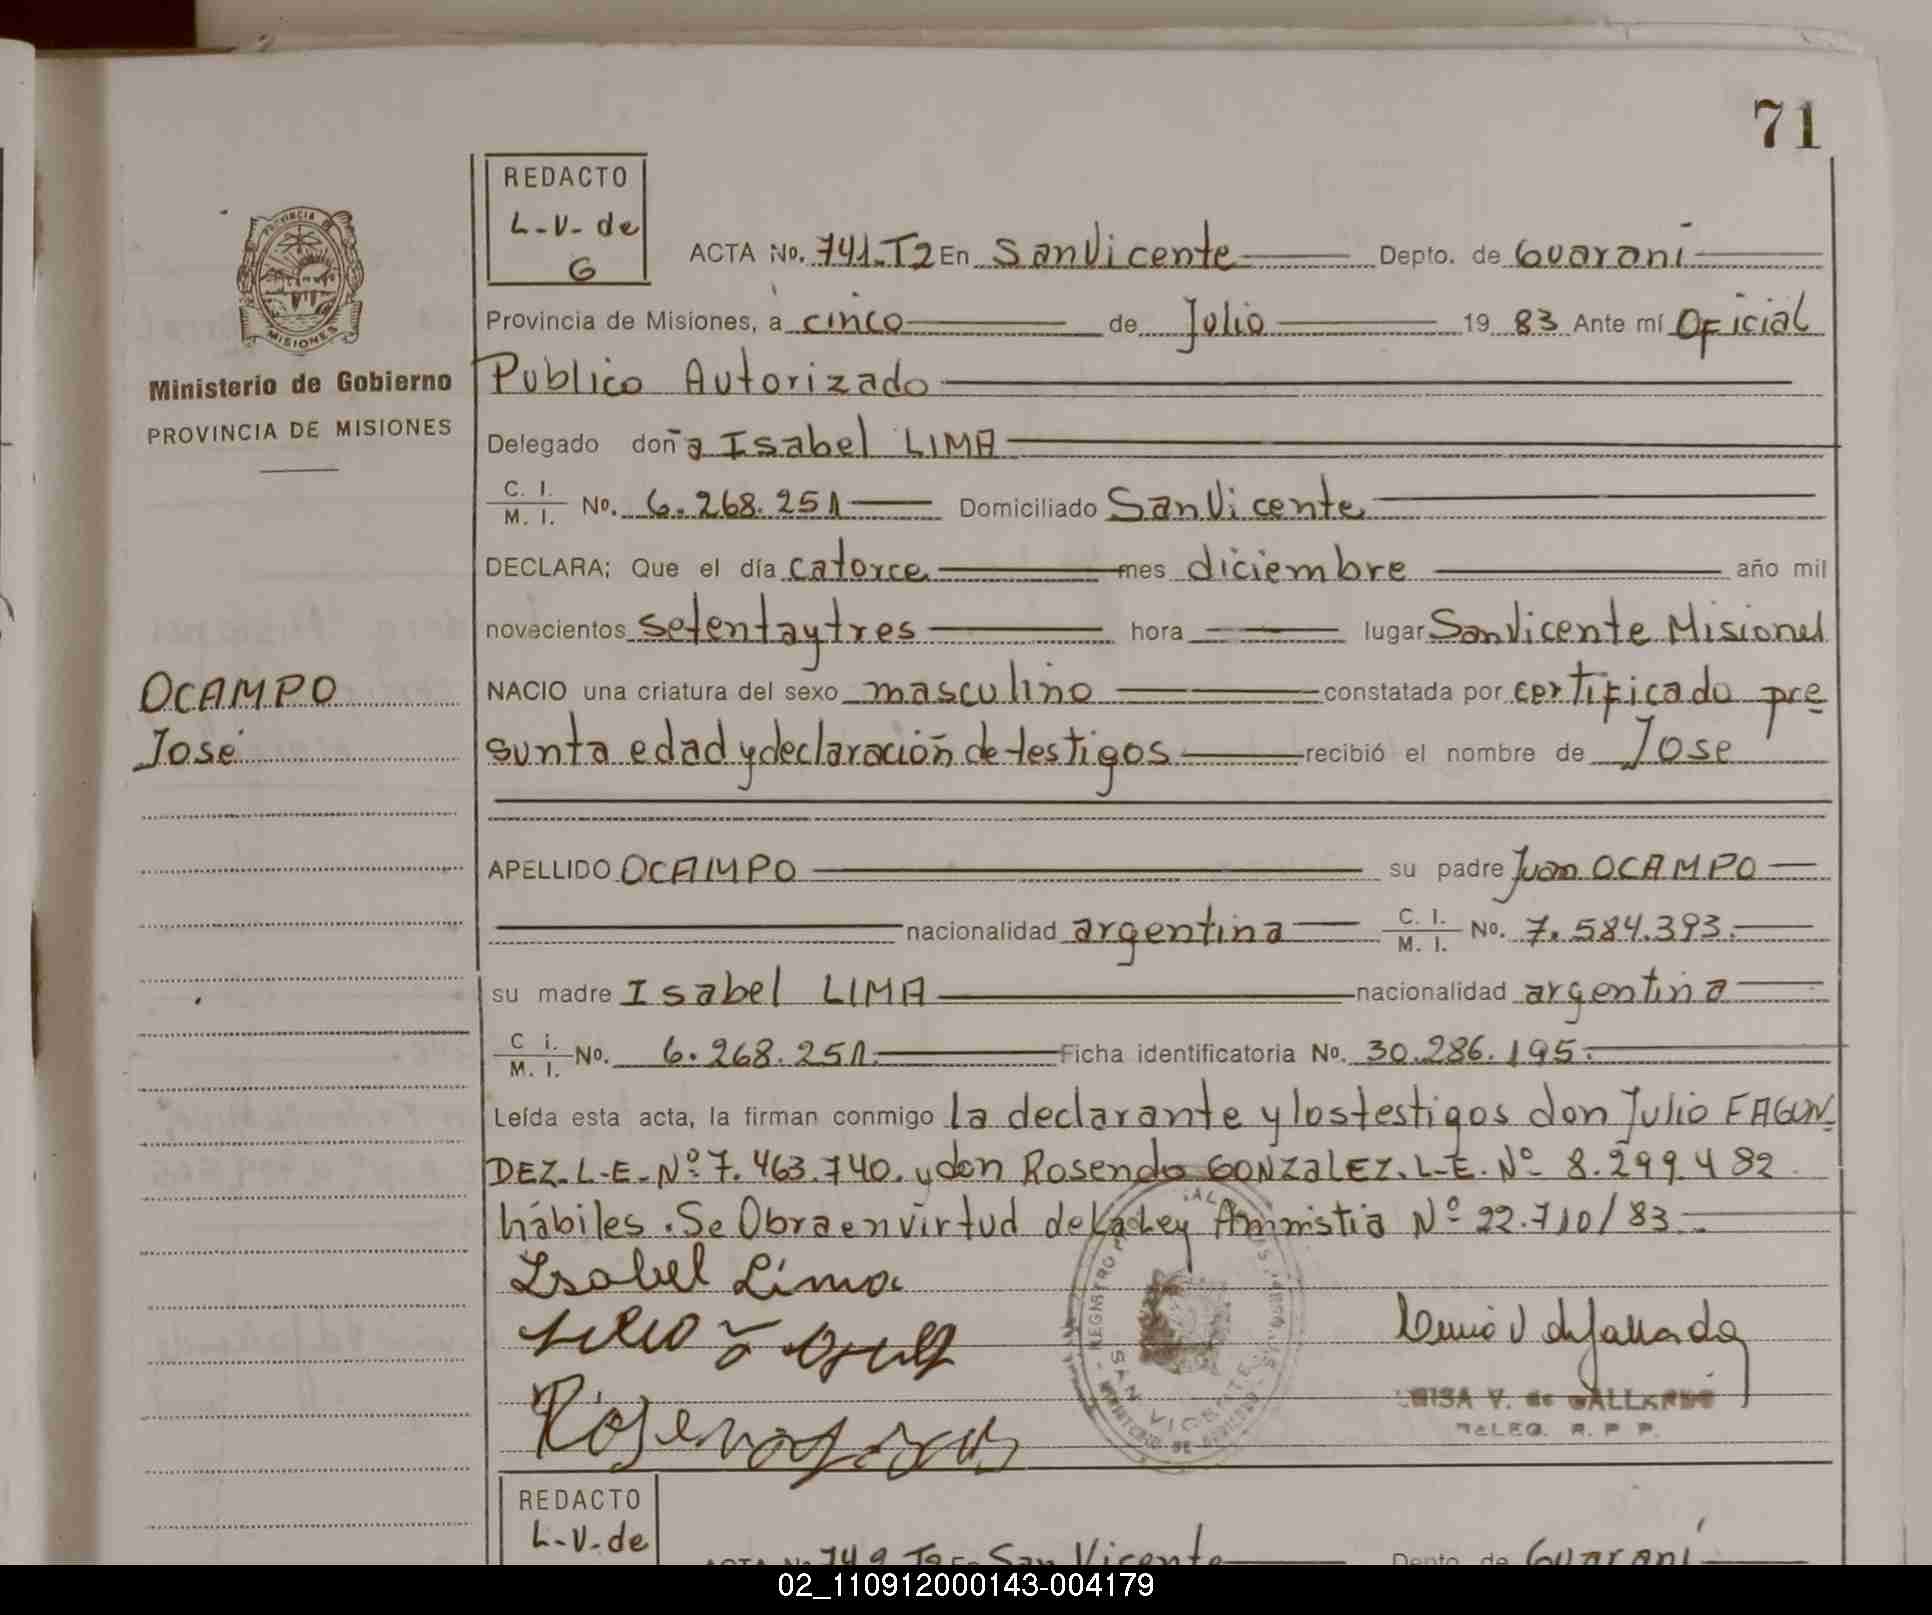 71
REDACTO
L-V- de
G
PROVINCIA
MISIONES
Ministerio de Gobierno
PROVINCIA DE MISIONES
ACTA No. 741-T2 En San Vicente Depto. de Guarani
Provincia de Misiones, a cinco de Julio 19 83 Ante mí Oficial
Publico Autorizado
Delegado doña Isabel LIMA
C. I. / M. I. No. 6.268.251 Domiciliado San Vicente
DECLARA; Que el día catorce mes diciembre año mil
novecientos setenta y tres hora lugar San Vicente Misiones
OCAMPO
José
NACIO una criatura del sexo masculino constatada por certificado pre
sunta edad y declaración de testigos recibió el nombre de Jose
APELLIDO OCAMPO su padre Juan OCAMPO
nacionalidad argentina C. I. / M. I. No. 7.584.393.
su madre Isabel LIMA nacionalidad argentina
C i. / M. I. No. 6.268.251. Ficha identificatoria No. 30.286.195.
Leída esta acta, la firman conmigo la declarante y los testigos don Julio FAGUN-
DEZ. L-E- Nº 7.463.740. y don Rosendo GONZALEZ. L-E. Nº 8.299.482
hábiles. Se Obra en virtud de la Ley Amnistia Nº 22.710/83.-
Isabel Lima
SAN VICENTE
LUISA V. de GALLARDO
DELEG. R. P. P.
REDACTO
L-V-de
ACTA No 742 T2 En San Vicente Depto de Guarani
02_110912000143-004179